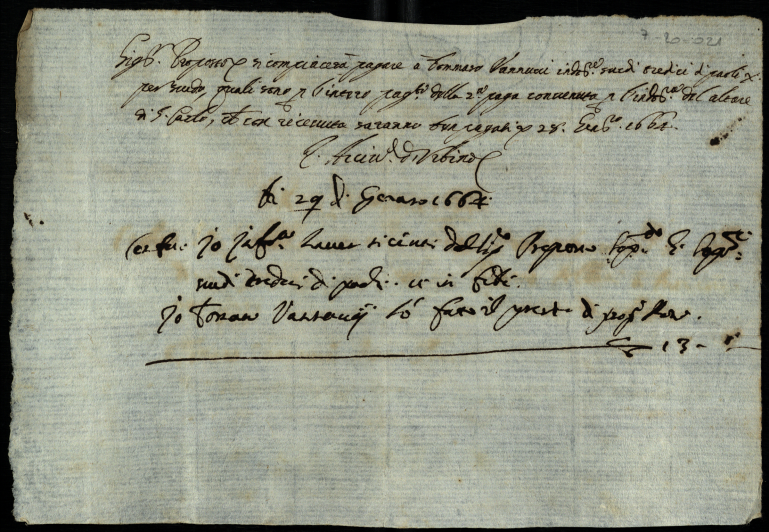 7-20-021
Sig.r Proposto si compiacerà pagare à Tommaso Vannucci indor.e scudi tredici di paoli X
per scudo, quali sono p l'intero pag.to della 2.a paga convenuta p l'indor.a del altare
di S. Carlo, che con ricevuta saranno ben pagati 28. Gen.o 1664.
d'Urbino
Adi 29 di Genaro 1664
Io haver ricevuti dal Sig.r Proposto
scudi tredici di paoli in fede
Io Tomaso Vannucij ò fato il presente di propria
13 -